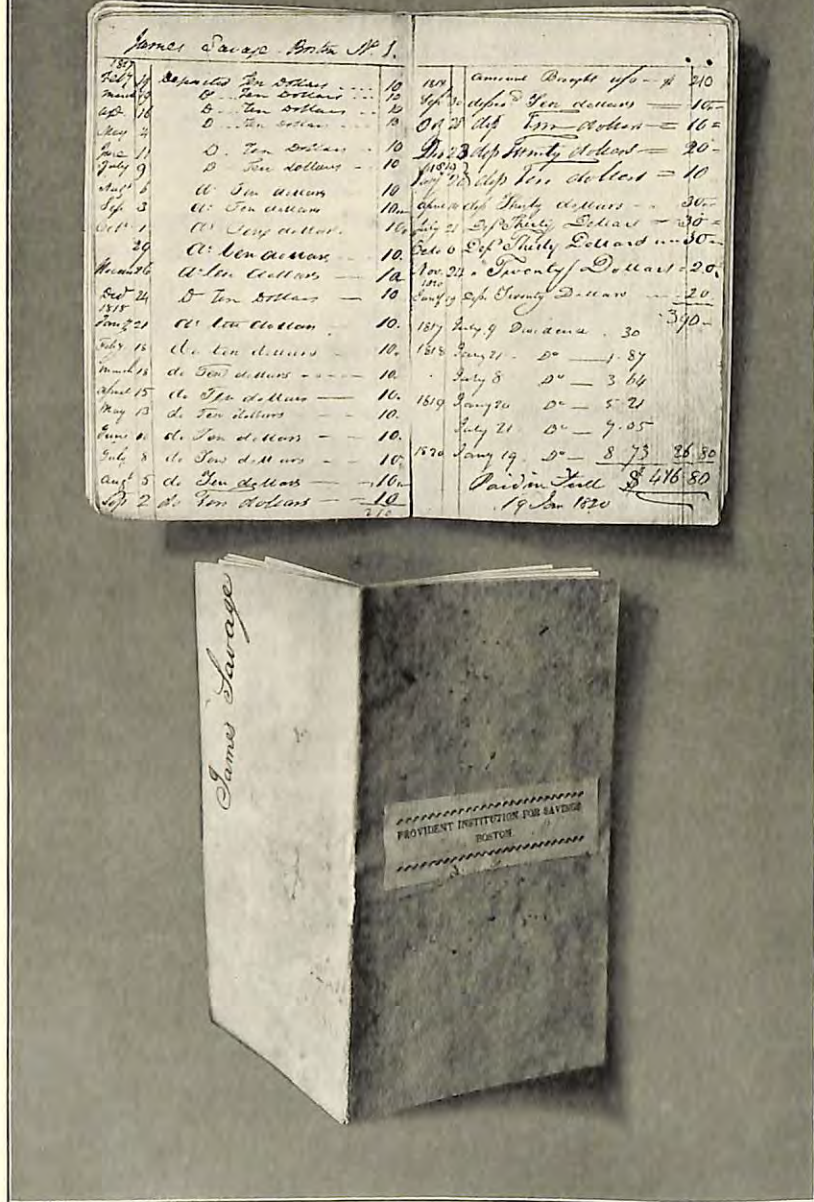 James Savage Boston No 1.
1817
Feby 19 Deposited Ten Dollars 10
March 19 Do Ten Dollars 10
apl 16 Do Ten Dollars 10
May 2 Do Ten Dollars 10
June 11 Do Ten Dollars 10
July 9 Do Ten dollars 10
Augt 6 do Ten dollars 10
Sep 3 do Ten dollars 10
Octr 1 do Ten dollars 10
29 do ten dollars 10.
Novem 26 do ten dollars 10
Decr 24 Do Ten Dollars 10
1818
Jany 21 do ten dollars 10.
Feby 18 do ten dollars 10.
March 18 do Ten dollars 10.
April 15 do Ten dollars 10.
May 13 do Ten dollars 10.
June do Ten dollars 10.
July 8 do Ten dollars 10
augt 5 do Ten dollars 10
Sep 2 do Ten dollars 10
210
1818 amount Brought up $ 210
Sepr 30 deposd Ten dollars 10
Oct 28 dep Ten dollars 10
Dec 23 dep Twenty dollars 20
1819
Jany 20 dep Ten dollars 10
april dep Thirty dollars 30
July 21 Dep Thirty Dollars 30
Octo 6 Dep Thirty Dollars 30
Nov. 24 Twenty Dollars 20
1820
Jany 19 Dep. Twenty Dollars 20
390
1817 July 9 Dividend . 30
1818 Jany 21 Do 1. 87
July 8 Do 3 64
1819 Jany 20 Do 5. 21
July 21 Do 7. 05
1820 Jany 19. Do 8 73 26 80
Paid in Full $ 416 80
19 Jan 1820
James Savage
PROVIDENT INSTITUTION FOR SAVINGS
BOSTON.